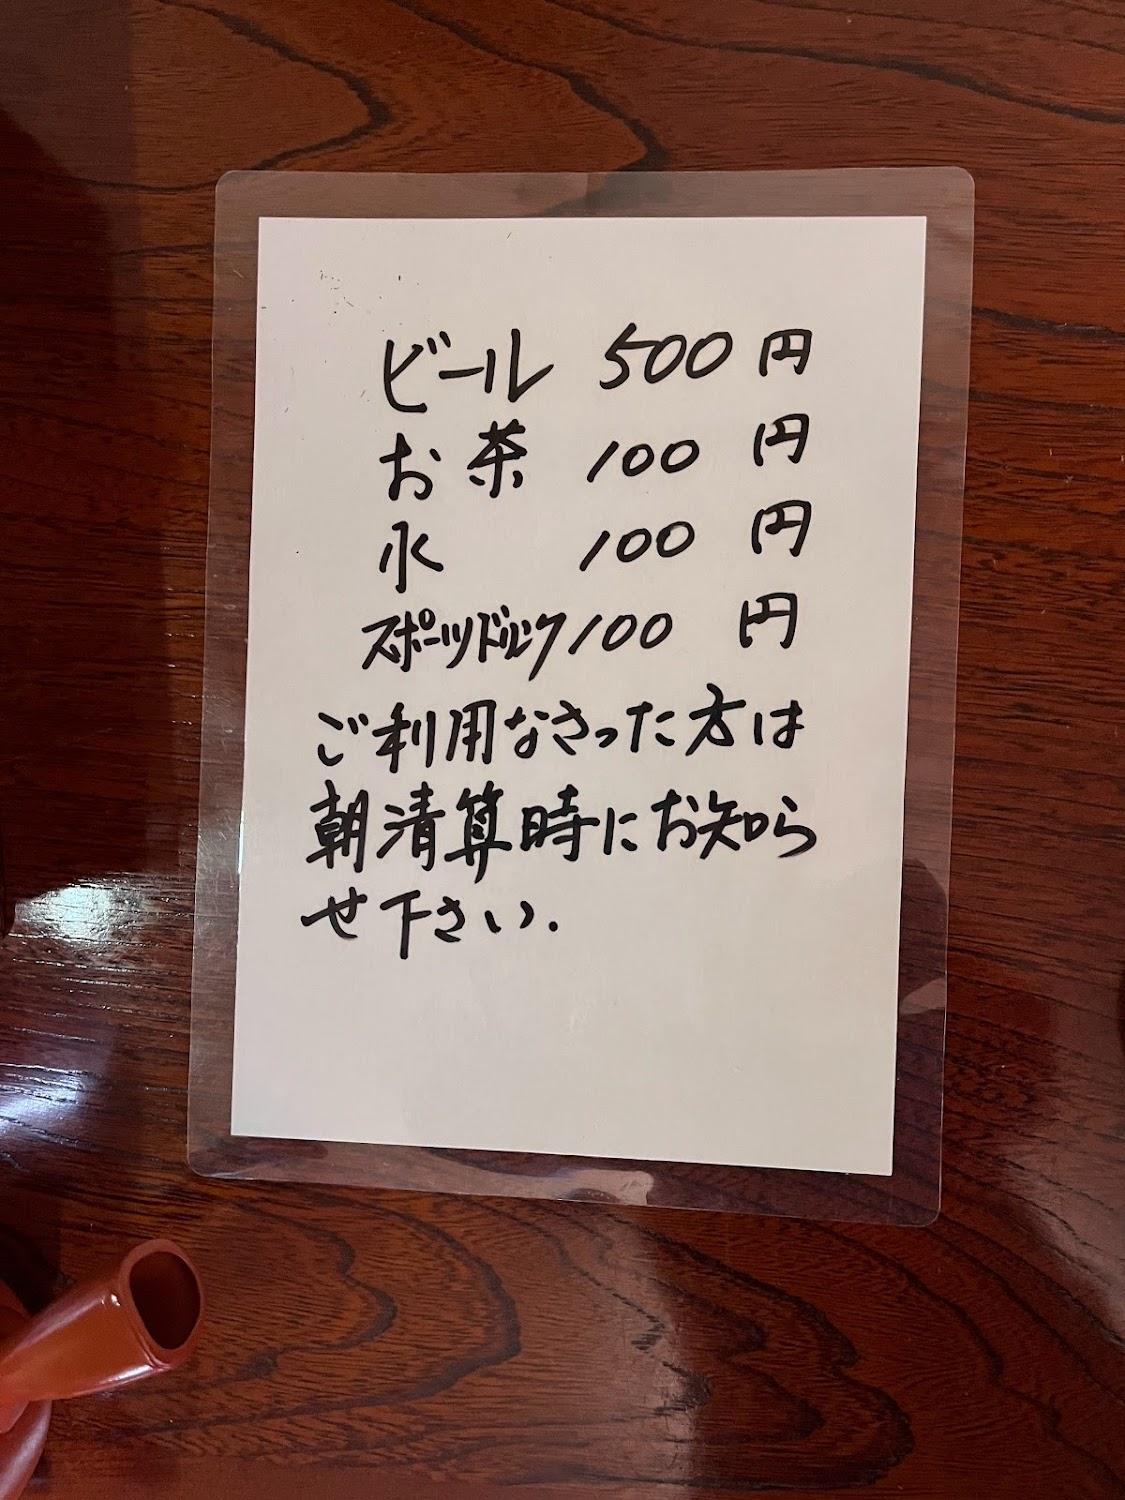 ビール 500 円
お茶 100 円
水 100 円
スポーツドルク 100 円
ご利用なさった方は
朝清算時にお知ら
せ下さい.